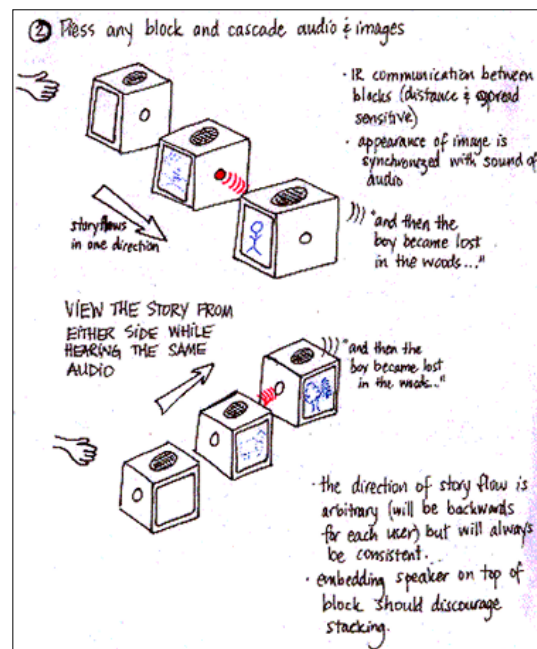 ② Press any block and cascade audio & images
· IR communication between
blocks (distance & spread
sensitive)
· appearance of image is
synchronized with sound of
audio
story flows
in one direction
"and then the
boy became lost
in the woods..."
VIEW THE STORY FROM
EITHER SIDE WHILE
HEARING THE SAME
AUDIO
"and then the
boy became lost
in the woods..."
· the direction of story flow is
arbitrary (will be backwards
for each user) but will always
be consistent.
· embedding speaker on top of
block should discourage
stacking.